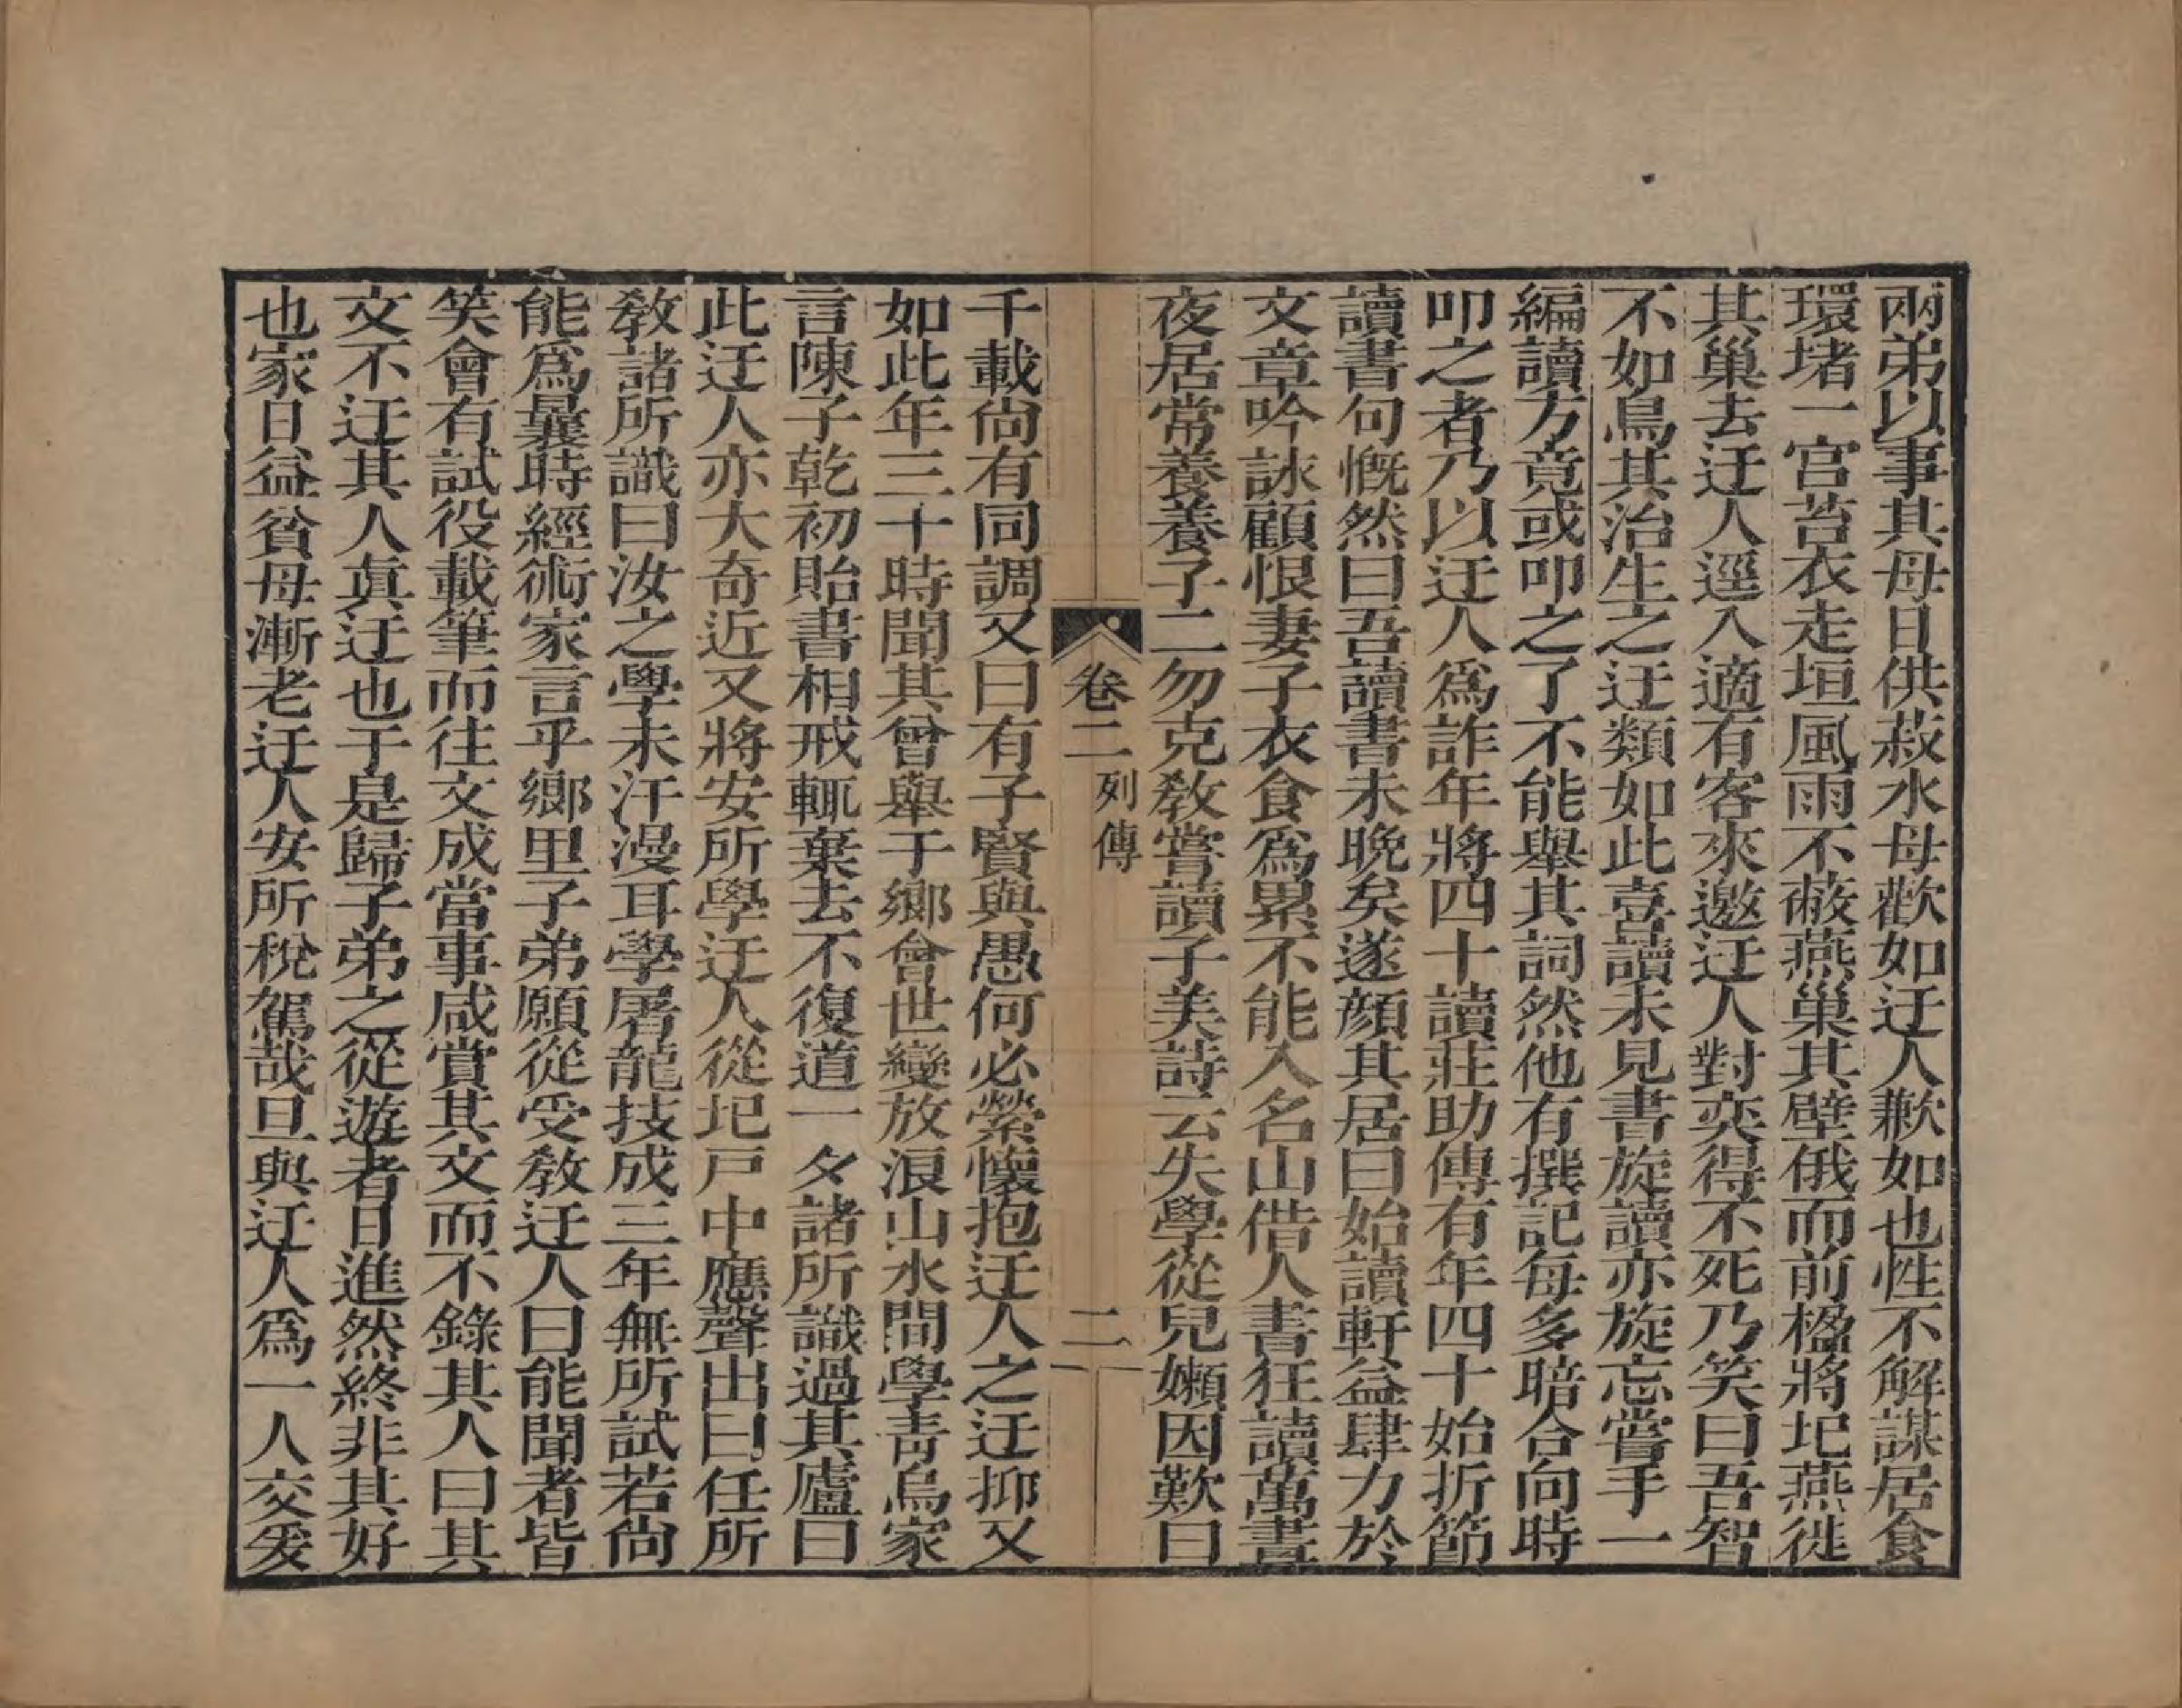 兩弟以事其母日供菽水母歡如迂人歉如也性不解謀居食
環堵一宮苔衣走垣風雨不蔽燕巢其壁俄而前楹將圮燕徙
其巢去迂人逕入適有客來邀迂人對奕得不死乃笑曰吾智
不如鳥其治生之迂類如此喜讀未見書旋讀亦旋忘嘗手一
編讀方竟或叩之了不能舉其詞然他有撰記每多暗合向時
叩之者乃以迂人爲詐年將四十讀莊助傳有年四十始折節
讀書句慨然曰吾讀書未晚矣遂顔其居曰始讀軒益肆力於
文章吟詠顧恨妻子衣食爲累不能入名山借人書狂讀萬晝
夜居常養養子二勿克敎嘗讀子美詩云失學從兒嬾因歎曰
卷二 列傳 二
千載尙有同調又曰有子賢與愚何必縈懷抱迂人之迂抑又
如此年三十時聞其曾舉于鄉會世變放浪山水間學靑烏家
言陳子乾初貽書相戒輒棄去不復道一夕諸所識過其廬曰
此迂人亦大奇近又將安所學迂人從圮戸中應聲出曰任所
敎諸所識曰汝之學未汗漫耳學屠龍技成三年無所試若尙
能爲曩時經術家言乎鄉里子弟願從受敎迂人曰能聞者皆
笑會有試役載筆而往文成當事咸賞其文而不錄其人曰其
文不迂其人眞迂也于是歸子弟之從遊者日進然終非其好
也家日益貧母漸老迂人安所稅駕哉旦與迂人爲一人交爰